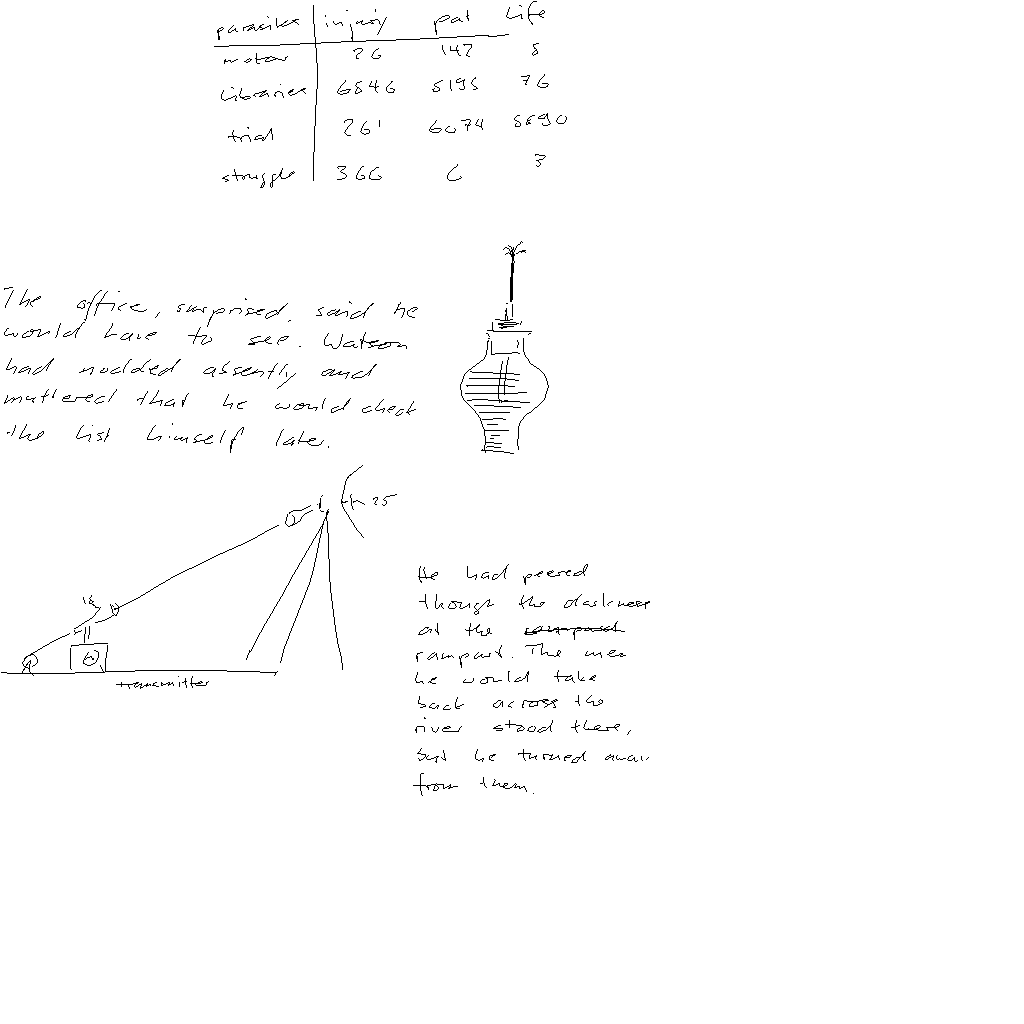 parasites injury pat life
motor 26 147 8
libraries 6546 5195 76
trial 261 6074 8890
struggle 366 6 3
The office, surprised, said he
would have to see. Watson
had nodded absently and
muttered that he would check
the list himself later.
25
transmitter
He had peered
though the darkness
at the
rampart. The men
he would take
back across the
river stood there,
but he turned away
from them.